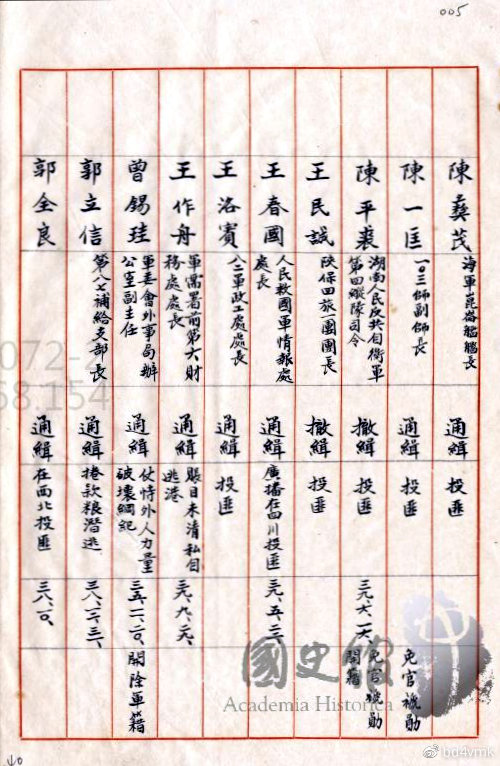 005
陳彝茂
海軍崑崙艦艦長
通緝
投匪
陳一匡
一〇三師副師長
通緝
投匪
免官褫勛
陳平裘
湖南人民反共自衛軍
第四縱隊司令
撤緝
投匪
三九、六、一六、
免官褫勛
開藉
王民誠
陝保四旅一團團長
撤緝
投匪
王春國
人民救國軍情報處
處長
通緝
廣播在四川投匪
三九、五、二一、
王洛賓
八二軍政工處處長
通緝
投匪
王作舟
軍需署前第六財
務處處長
通緝
賬目未清私自
逃港
三九、九、二九、
曾錫珪
軍委會外事局辦
公室副主任
通緝
仗恃外人力量
破壞綱紀
三五、一一、二〇、
開除軍藉
郭立信
第八七補給支部長
通緝
捲款粮潛逃
三八、一二、三一、
郭全良
通緝
在西北投匪
三八、一〇、
國史館
Academia Historica
072-2
68.154
40
@bd4vmk